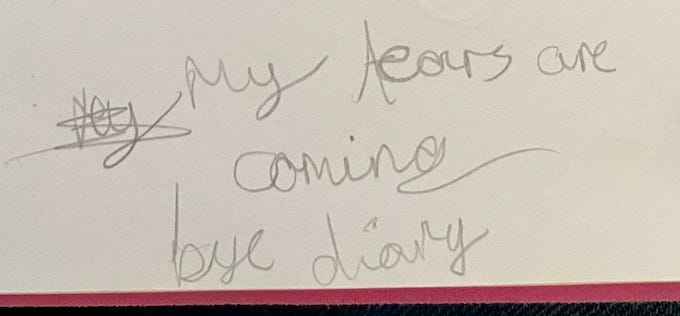 My tears are
coming
bye diary